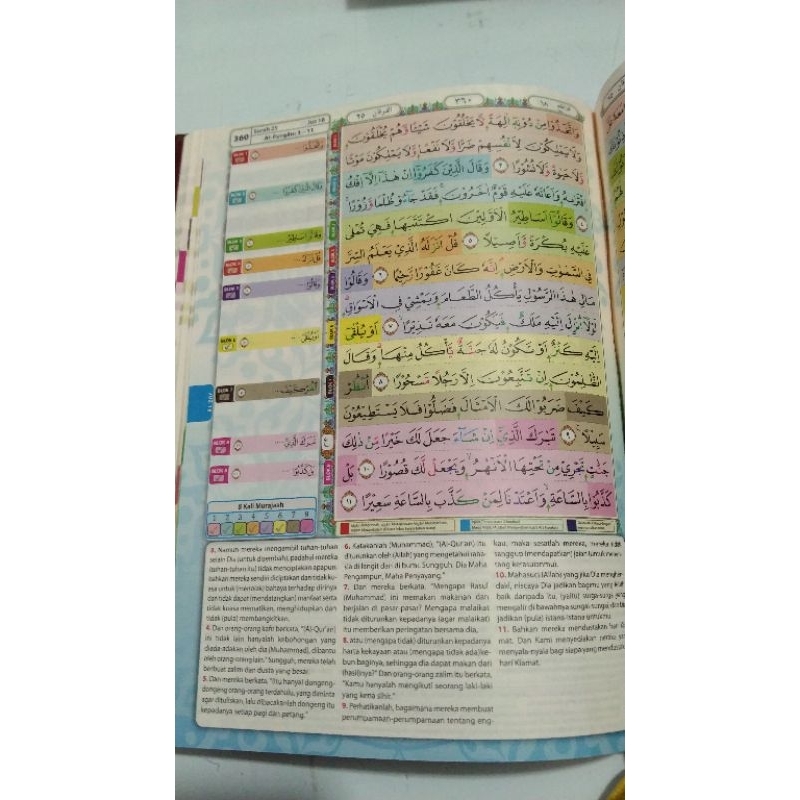 360
Surah 25
Juz 18
Al-Furqān: 3 - 11
الفرقان ٢٥
٣٦٠
وَاتَّخَذُوْا مِنْ دُوْنِهٖٓ اٰلِهَةً لَّا يَخْلُقُوْنَ شَيْـًٔا وَّهُمْ يُخْلَقُوْنَ
وَلَا يَمْلِكُوْنَ لِاَنْفُسِهِمْ ضَرًّا وَّلَا نَفْعًا وَّلَا يَمْلِكُوْنَ مَوْتًا
وَّلَا حَيٰوةً وَّلَا نُشُوْرًا ٣ وَقَالَ الَّذِيْنَ كَفَرُوْٓا اِنْ هٰذَآ اِلَّآ اِفْكُ
ࣙافْتَرٰىهُ وَاَعَانَهٗ عَلَيْهِ قَوْمٌ اٰخَرُوْنَ ۚ فَقَدْ جَاۤءُوْ ظُلْمًا وَّزُوْرًا
٤ وَقَالُوْٓا اَسَاطِيْرُ الْاَوَّلِيْنَ اكْتَتَبَهَا فَهِيَ تُمْلٰى
عَلَيْهِ بُكْرَةً وَّاَصِيْلًا ٥ قُلْ اَنْزَلَهُ الَّذِيْ يَعْلَمُ السِّرَّ
فِى السَّمٰوٰتِ وَالْاَرْضِ ۗ اِنَّهٗ كَانَ غَفُوْرًا رَّحِيْمًا ٦ وَقَالُوْا
مَالِ هٰذَا الرَّسُوْلِ يَأْكُلُ الطَّعَامَ وَيَمْشِيْ فِى الْاَسْوَاقِ ۗ
لَوْلَآ اُنْزِلَ اِلَيْهِ مَلَكٌ فَيَكُوْنَ مَعَهٗ نَذِيْرًا ۙ ٧ اَوْ يُلْقٰٓى
اِلَيْهِ كَنْزٌ اَوْ تَكُوْنُ لَهٗ جَنَّةٌ يَّأْكُلُ مِنْهَا ۗ وَقَالَ
الظّٰلِمُوْنَ اِنْ تَتَّبِعُوْنَ اِلَّا رَجُلًا مَّسْحُوْرًا ٨ اُنْظُرْ
كَيْفَ ضَرَبُوْا لَكَ الْاَمْثَالَ فَضَلُّوْا فَلَا يَسْتَطِيْعُوْنَ
سَبِيْلًا ٩ تَبٰرَكَ الَّذِيْٓ اِنْ شَاۤءَ جَعَلَ لَكَ خَيْرًا مِّنْ ذٰلِكَ
جَنّٰتٍ تَجْرِيْ مِنْ تَحْتِهَا الْاَنْهٰرُ ۙ وَيَجْعَلْ لَّكَ قُصُوْرًا ١٠ بَلْ
كَذَّبُوْا بِالسَّاعَةِ وَاَعْتَدْنَا لِمَنْ كَذَّبَ بِالسَّاعَةِ سَعِيْرًا ١١
8 Kali Muraja'ah
1 2 3 4 5 6 7 8
3. Namun mereka mengambil tuhan-tuhan
selain Dia (untuk disembah), padahal mereka
(tuhan-tuhan itu) tidak menciptakan apapun,
bahkan mereka sendiri diciptakan dan tidak kuasa
untuk (menolak) bahaya terhadap dirinya
dan tidak dapat (mendatangkan) manfaat serta
tidak kuasa mematikan, menghidupkan dan
tidak (pula) membangkitkan.
4. Dan orang-orang kafir berkata, "(Al-Qur'an)
ini tidak lain hanyalah kebohongan yang
diada-adakan oleh dia (Muhammad), dibantu
oleh orang-orang lain." Sungguh, mereka telah
berbuat zalim dan dusta yang besar.
5. Dan mereka berkata, "(Itu hanya) dongeng-
dongeng orang-orang terdahulu, yang diminta
agar dituliskan, lalu dibacakanlah dongeng itu
kepadanya setiap pagi dan petang."
6. Katakanlah (Muhammad), "(Al-Qur'an) itu
diturunkan oleh (Allah) yang mengetahui rahasia
di langit dan di bumi. Sungguh, Dia Maha
Pengampun, Maha Penyayang."
7. Dan mereka berkata, "Mengapa Rasul
(Muhammad) ini memakan makanan dan
berjalan di pasar-pasar? Mengapa malaikat
tidak diturunkan kepadanya (agar malaikat)
itu memberikan peringatan bersama dia,
8. atau (mengapa tidak) diturunkan kepadanya
harta kekayaan atau (mengapa tidak ada) ke-
bun baginya, sehingga dia dapat makan dari
(hasil)nya?" Dan orang-orang zalim itu berkata,
"Kamu hanyalah mengikuti seorang laki-laki
yang kena sihir."
9. Perhatikanlah, bagaimana mereka membuat
perumpamaan-perumpamaan tentang eng-
kau, maka sesatlah mereka,
sanggup (mendapatkan) jalan
10. Mahasuci (Allah) yang jika Dia menghen-
daki, niscaya Dia jadikan bagimu yang lebih
baik daripada itu, (yaitu) surga-surga yang
mengalir di bawahnya sungai-sungai dan
jadikan (pula) istana-istana untukmu.
11. Bahkan mereka mendustakan hari
Kiamat. Dan Kami menyediakan neraka yang
menyala-nyala bagi siapa yang mendustakan
hari Kiamat.